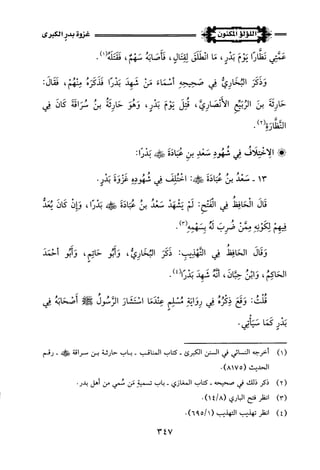 اللؤلؤ المكنون
غزوة بدر الكبرى
عَمَّتِي نَظَّارًا يَوْمَ بَدْرٍ، مَا انْطَلَقَ لِقِتَالٍ، فَأَصَابَهُ سَهْمٌ، فَقَتَلَهُ(١).
وَذَكَرَ البُخَارِيُّ فِي صَحِيحِهِ أَسْمَاءَ مَنْ شَهِدَ بَدْرًا فَذَكَرَهُ مِنْهُمْ، فَقَالَ:
حَارِثَةُ بنُ الرُّبَيِّعِ الأَنْصَارِيُّ، قُتِلَ يَوْمَ بَدْرٍ، وَهُوَ حَارِثَةُ بنُ سُرَاقَةَ كَانَ فِي
النَّظَّارَةِ(٢).
الِاخْتِلَافُ فِي شُهُودِ سَعْدِ بنِ عُبَادَةَ ﷺ بَدْرًا:
١٣ - سَعْدُ بنُ عُبَادَةَ ﷺ: اخْتُلِفَ فِي شُهُودِهِ غَزْوَةَ بَدْرٍ.
قَالَ الحَافِظُ فِي الفَتْحِ: لَمْ يَشْهَدْ سَعْدُ بنُ عُبَادَةَ ﷺ بَدْرًا، وَإِنْ كَانَ يُعَدُّ
فِيهِمْ لِكَوْنِهِ مِمَّنْ ضُرِبَ لَهُ بِسَهْمِهِ(٣).
وَقَالَ الحَافِظُ فِي التَّهْذِيبِ: ذَكَرَ البُخَارِيُّ، وَأَبُو حَاتِمٍ، وَأَبُو أَحْمَدَ
الحَاكِمُ، وَابْنُ حِبَّانَ، أَنَّهُ شَهِدَ بَدْرًا(٤).
قُلْتُ: وَقَعَ ذِكْرُهُ فِي رِوَايَةِ مُسْلِمٍ عِنْدَمَا اسْتَشَارَ الرَّسُولُ ﷺ أَصْحَابَهُ فِي
بَدْرٍ كَمَا سَيَأْتِي.
(١) أخرجه النسائي في السنن الكبرى - كتاب المناقب - باب حارثة بن سراقة ﷺ - رقم
الحديث (٨١٧٥).
(٢) ذكر ذلك في صحيحه - كتاب المغازي - باب تسمية من سُمي من أهل بدر.
(٣) انظر فتح الباري (١٤/٨).
(٤) انظر تهذيب التهذيب (٦٩٥/١).
٣٤٧